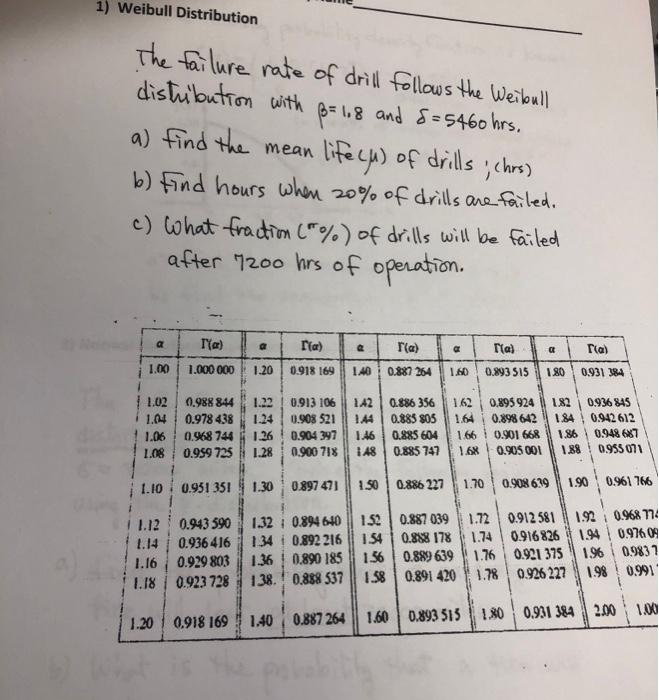 1) Weibull Distribution
The failure rate of drill follows the Weibull
distribution with β=1.8 and δ=5460 hrs.
a) find the mean life(μ) of drills ; (hrs)
b) find hours when 20% of drills are failed.
c) What fraction ("%) of drills will be failed
after 7200 hrs of operation.
α Γ(α) α Γ(α) α Γ(α) α Γ(α) α Γ(α)
1.00 1.000 000 1.20 0.918 169 1.40 0.887 264 1.60 0.893 515 1.80 0.931 384
1.02 0.988 844 1.22 0.913 106 1.42 0.886 356 1.62 0.895 924 1.82 0.936 845
1.04 0.978 438 1.24 0.908 521 1.44 0.885 805 1.64 0.898 642 1.84 0.942 612
1.06 0.968 744 1.26 0.904 397 1.46 0.885 604 1.66 0.901 668 1.86 0.948 687
1.08 0.959 725 1.28 0.900 718 1.48 0.885 747 1.68 0.905 001 1.88 0.955 071
1.10 0.951 351 1.30 0.897 471 1.50 0.886 227 1.70 0.908 639 1.90 0.961 766
1.12 0.943 590 1.32 0.894 640 1.52 0.887 039 1.72 0.912 581 1.92 0.968 774
1.14 0.936 416 1.34 0.892 216 1.54 0.888 178 1.74 0.916 826 1.94 0.976 09
1.16 0.929 803 1.36 0.890 185 1.56 0.889 639 1.76 0.921 375 1.96 0.983 7
1.18 0.923 728 1.38. 0.888 537 1.58 0.891 420 1.78 0.926 227 1.98 0.991
1.20 0.918 169 1.40 0.887 264 1.60 0.893 515 1.80 0.931 384 2.00 1.00